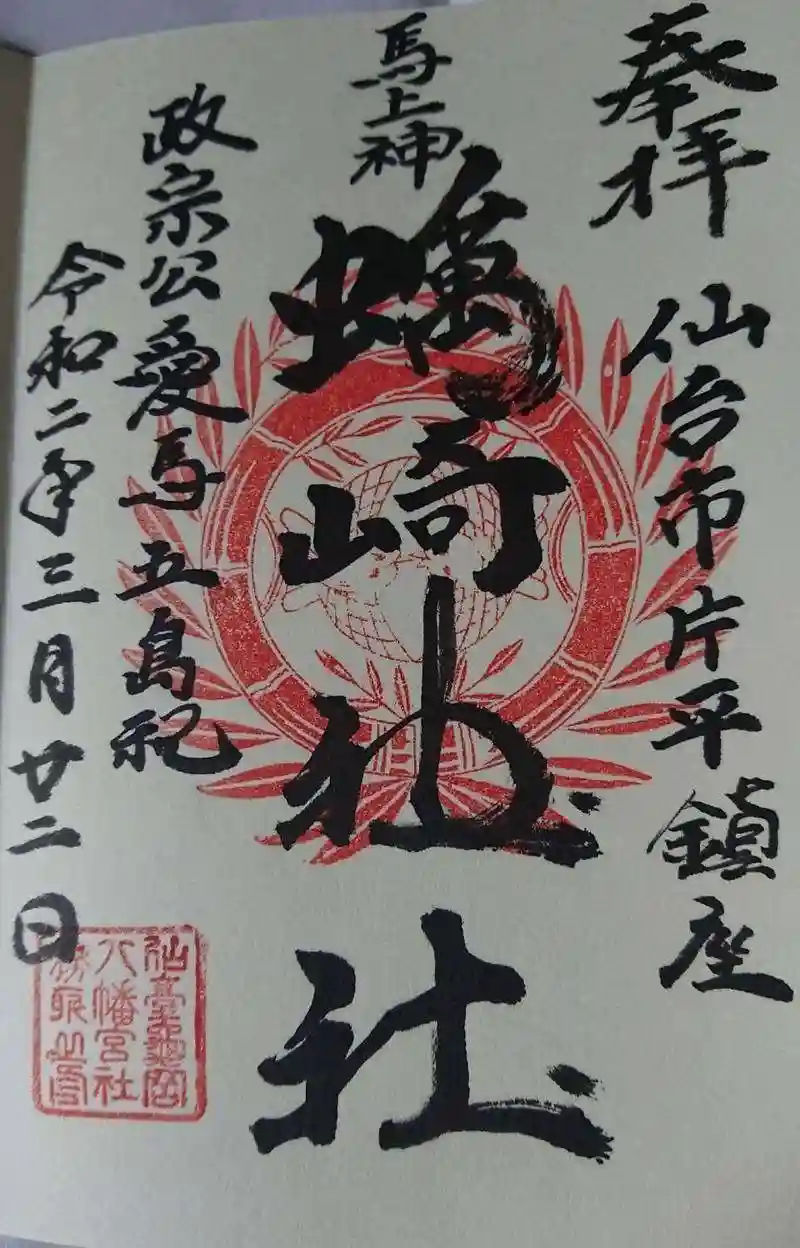 奉拝
仙台市片平鎮座
馬上神
蠣崎神社
政宗公愛馬五島祀
令和二年三月廿二日
仙臺龜岡
八幡宮社
務所之印